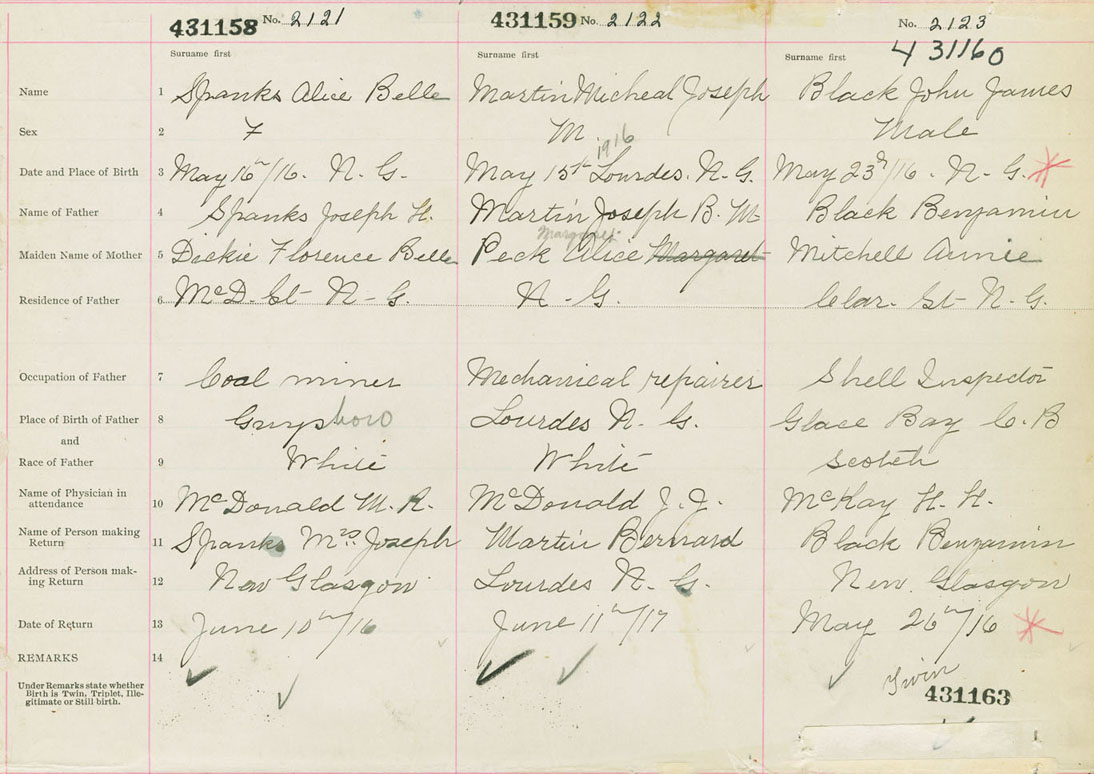 431158 No. 2121 431159 No. 2122 No. 2123
431160
Surname first Surname first Surname first
Name 1 Spanks Alice Belle Martin Micheal Joseph Black John James
Sex 2 F M Male
1916
Date and Place of Birth 3 May 16th/16. N. G. May 15th Lourdes. N. G. May 23d/16. N. G. *
Name of Father 4 Spanks Joseph H. Martin Joseph B. M Black Benjamin
Margaret
Maiden Name of Mother 5 Dickie Florence Belle Peck Alice Margaret Mitchell Annie
Residence of Father 6 McD. St N-G. N-G. Clar. St N-G.
Occupation of Father 7 Coal miner Mechanical repairer Shell Inspector
Place of Birth of Father 8 Guysboro Lourdes N. G. Glace Bay C. B
and
Race of Father 9 White White Scotch
Name of Physician in
attendance 10 McDonald M. R. McDonald J. J. McKay H. H.
Name of Person making
Return 11 Spanks Mrs. Joseph Martin Bernard Black Benjamin
Address of Person mak-
ing Return 12 New Glasgow Lourdes N. G. New Glasgow
Date of Return 13 June 10th/16 June 11th/17 May 26th/16 *
REMARKS 14
Under Remarks state whether
Birth is Twin, Triplet, Ille-
gitimate or Still birth.
Twin
431163